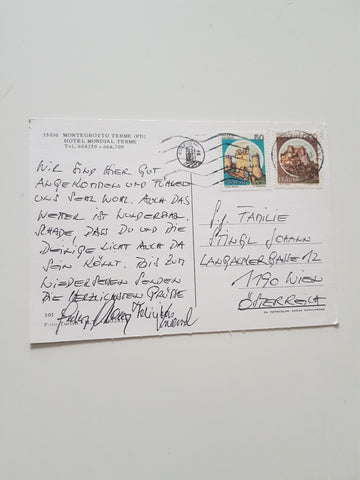 35036 MONTEGROTTO TERME (PD)
HOTEL MONDIAL TERME
Tel. 668700 - 668.709
WIR SIND HIER GUT
ANGEKOMMEN UND FÜHLEN
UNS SEHR WOHL. AUCH DAS
WETTER IST WUNDERBAR.
SCHADE, DASS DU UND DIE
DEINIGE NICHT AUCH DA
SEIN KÖNNT. BIS ZUM
WIEDERSEHEN SENDEN
DIE HERZLICHSTEN GRÜSSE
301
FAMILIE
STINGL JOHANN
LANGACKERGASSE 12
1190 WIEN
ÖSTERREICH